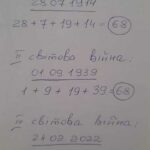 28.07.1914
28+7+19+14=68
II світова війна:
01.09.1939
1+9+19+39=68
III світова війна:
24.02.2022